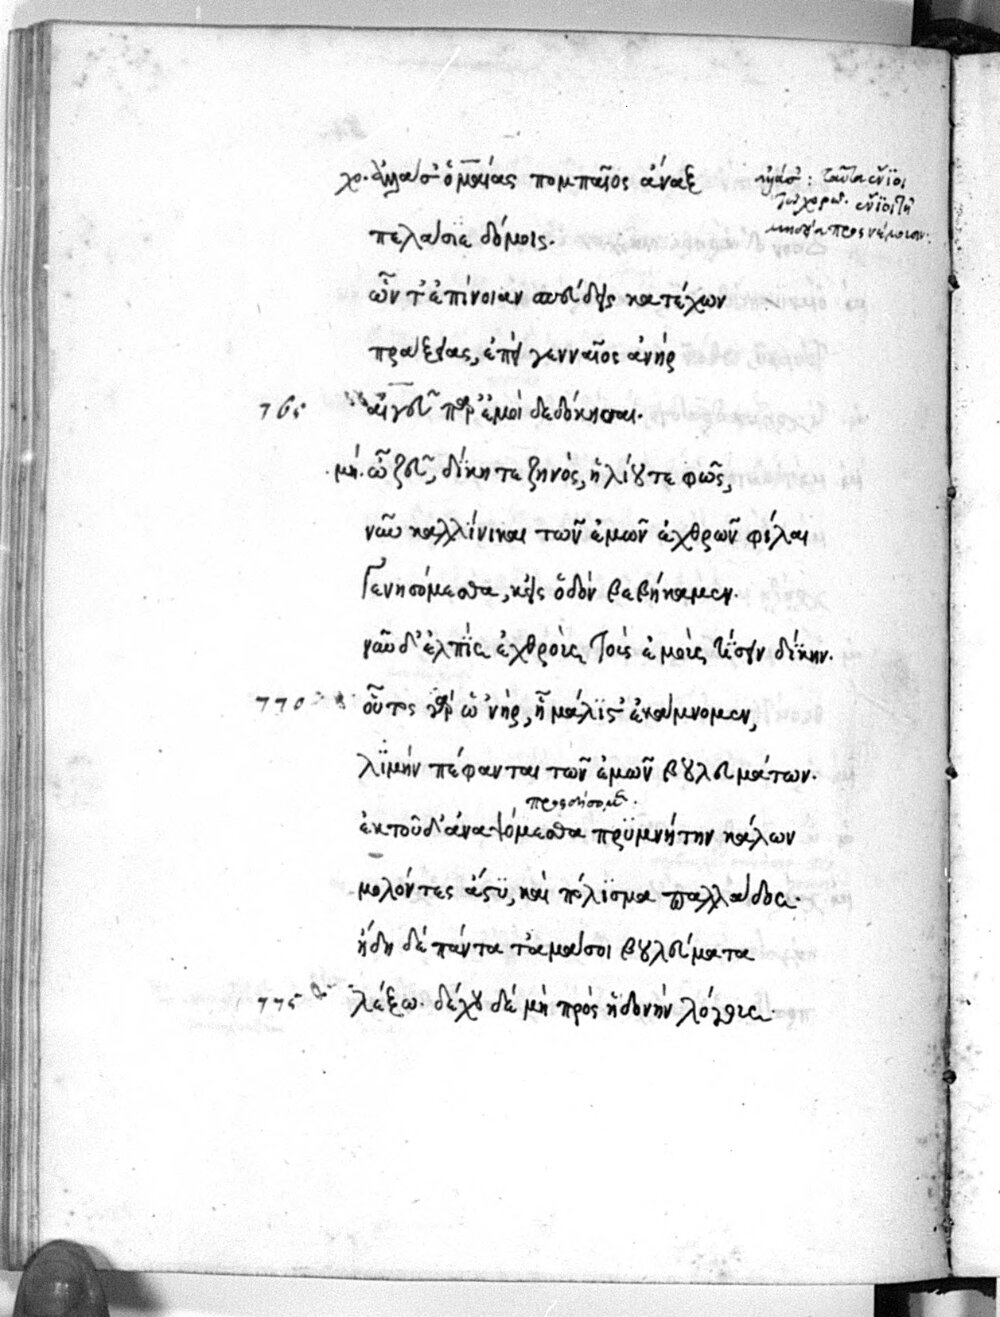 χο. ἀλλά σ' ὁ μαίας πομπαῖος ἄναξ
πελάσειε δόμοις.
ὧν τ' ἐπίνοιαν σπεύδεις κατέχων
πράξειας, ἐπεὶ γενναῖος ἀνήρ
765 αἰγεῦ παρ' ἐμοὶ δεδόκησαι.
μή. ὦ ζεῦ, δίκη τε ζηνὸς, ἡλίου τε φῶς,
νῦν καλλίνικοι τῶν ἐμῶν ἐχθρῶν φίλαι
γενησόμεσθα, κεἰς ὁδὸν βεβήκαμεν.
νῦν δ' ἐλπὶς ἐχθροὺς τοὺς ἐμοὺς τίσειν δίκην.
770 οὗτος γὰρ ὡνὴρ, ᾗ μάλιστ' ἐκάμνομεν,
λιμὴν πέφανται τῶν ἐμῶν βουλευμάτων.
ἐκ τοῦδ' ἀναψόμεσθα πρυμνήτην κάλων
μολόντες ἄστυ, καὶ πόλισμα παλλάδος.
ἤδη δὲ πάντα τἀμά σοι βουλεύματα
775 λέξω. δέχου δὲ μὴ πρὸς ἡδονὴν λόγους.